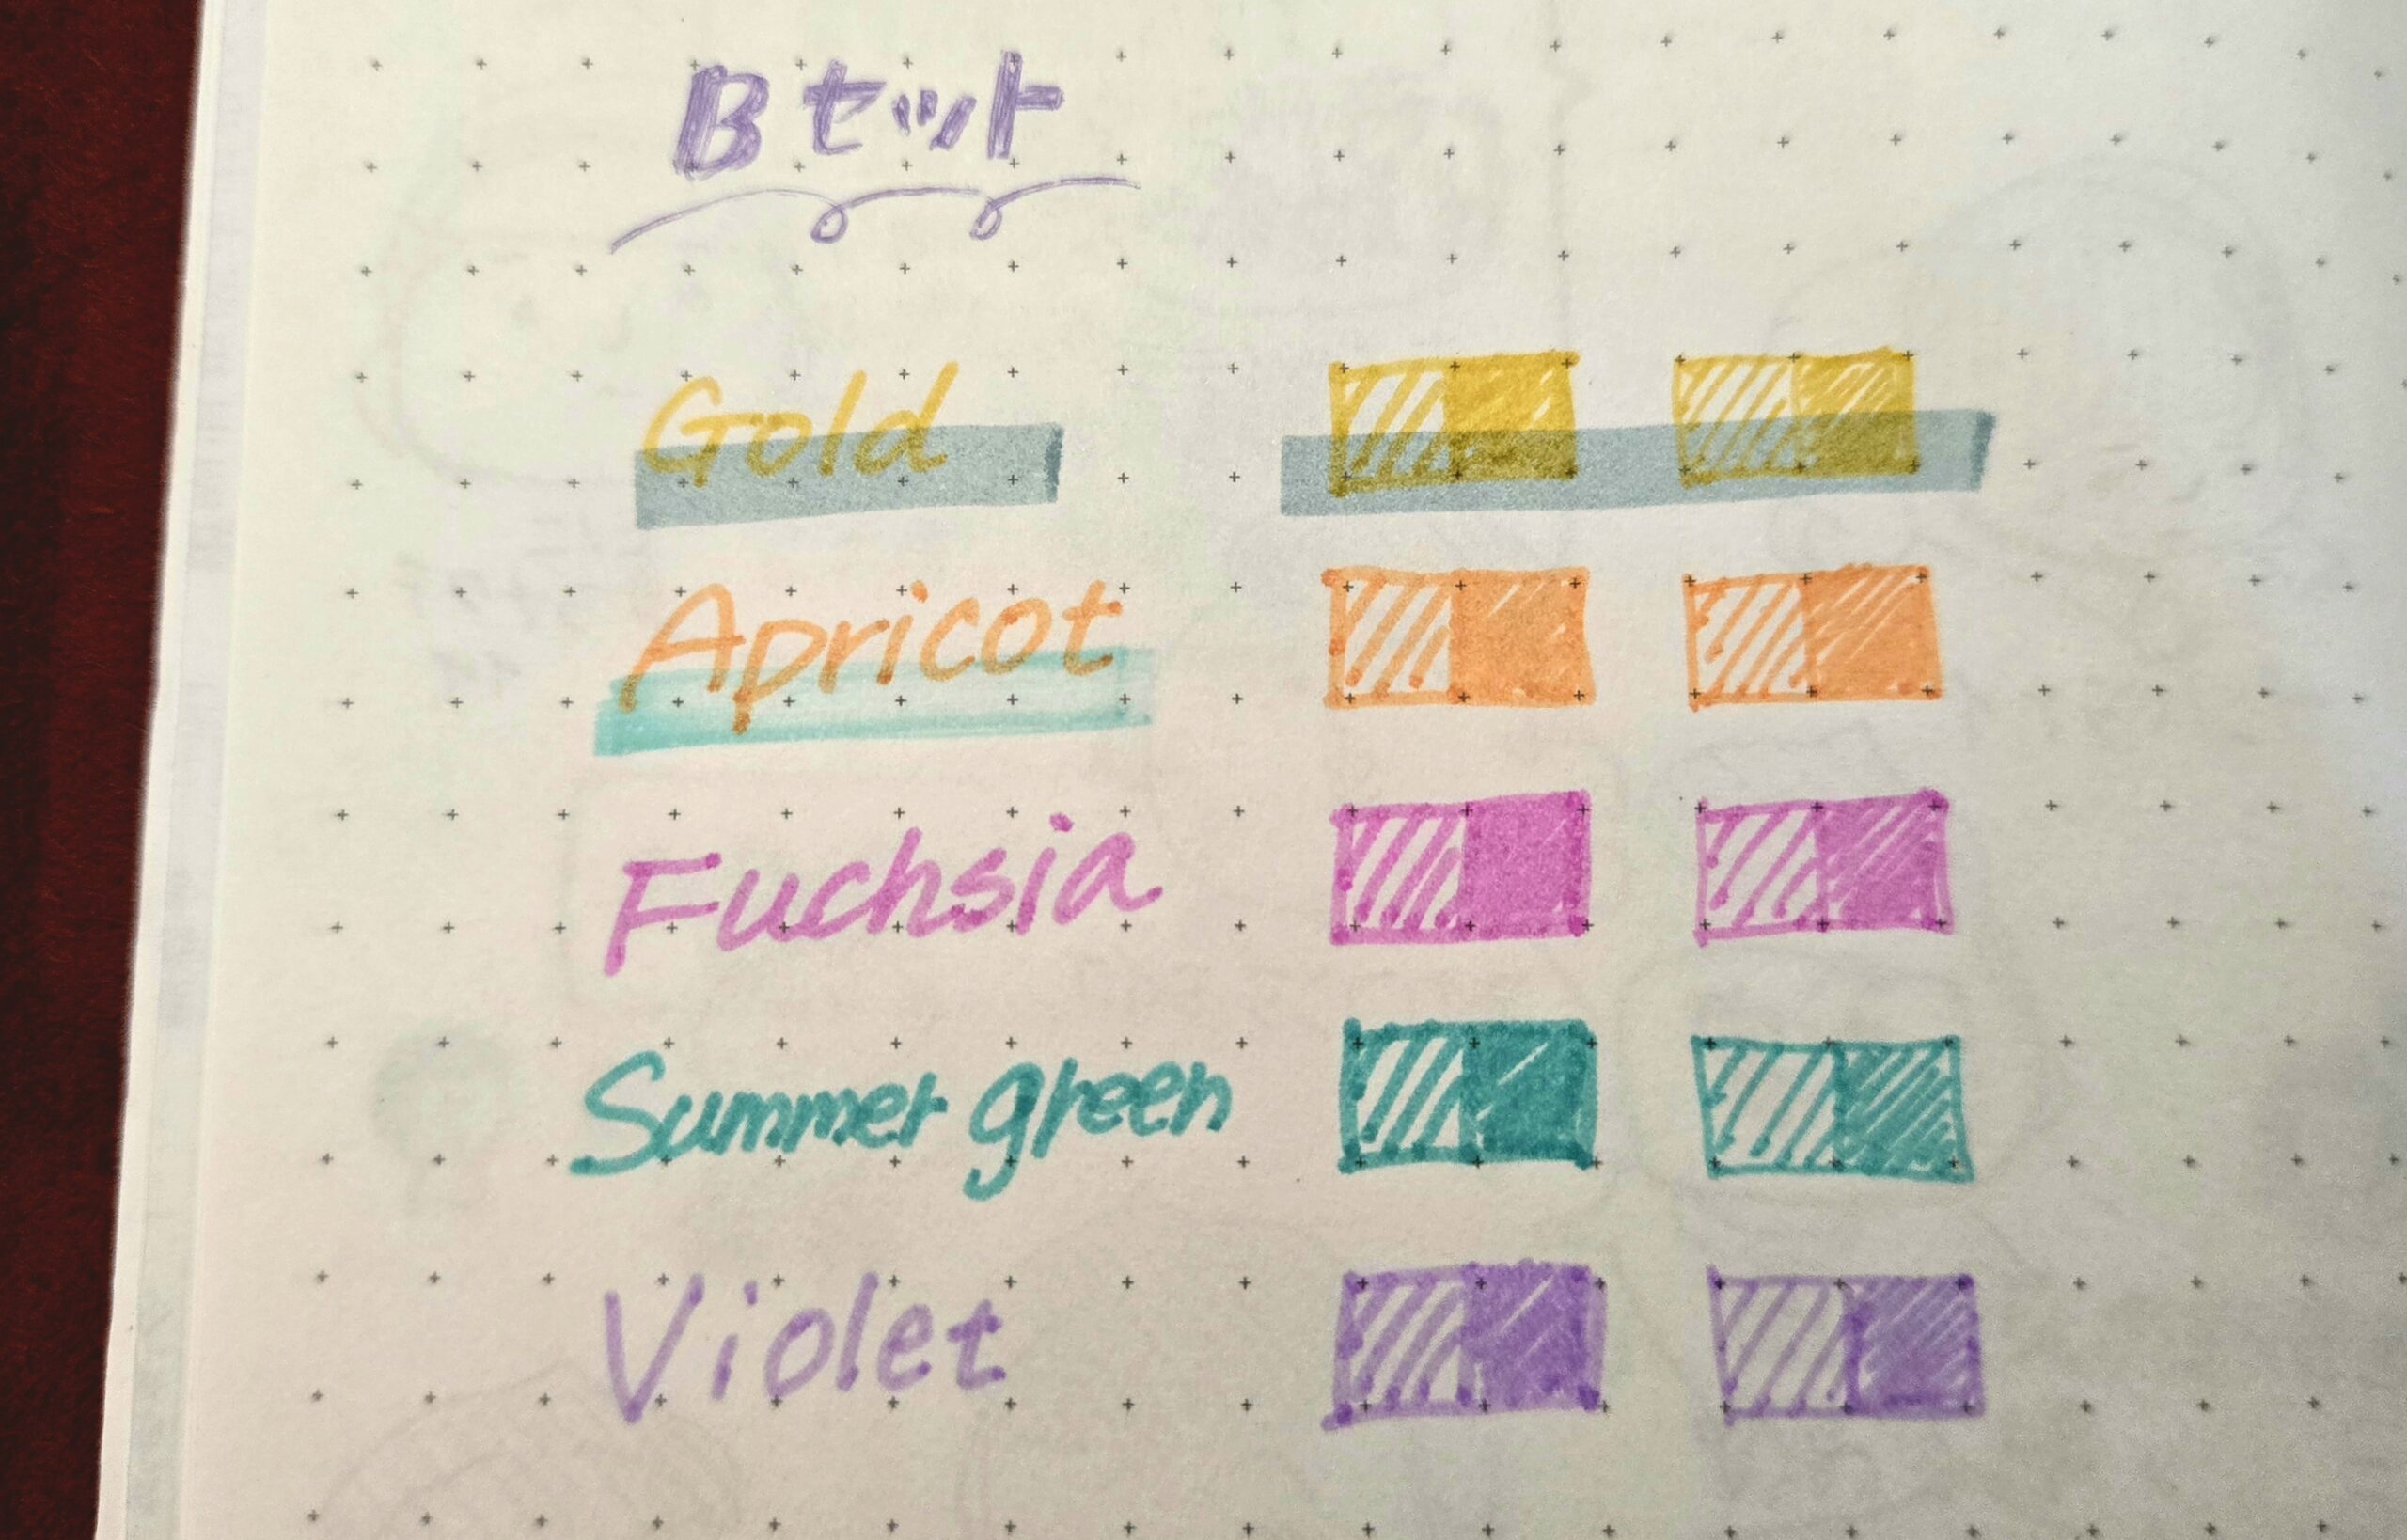 Bセット
Gold
Apricot
Fuchsia
Summer green
Violet